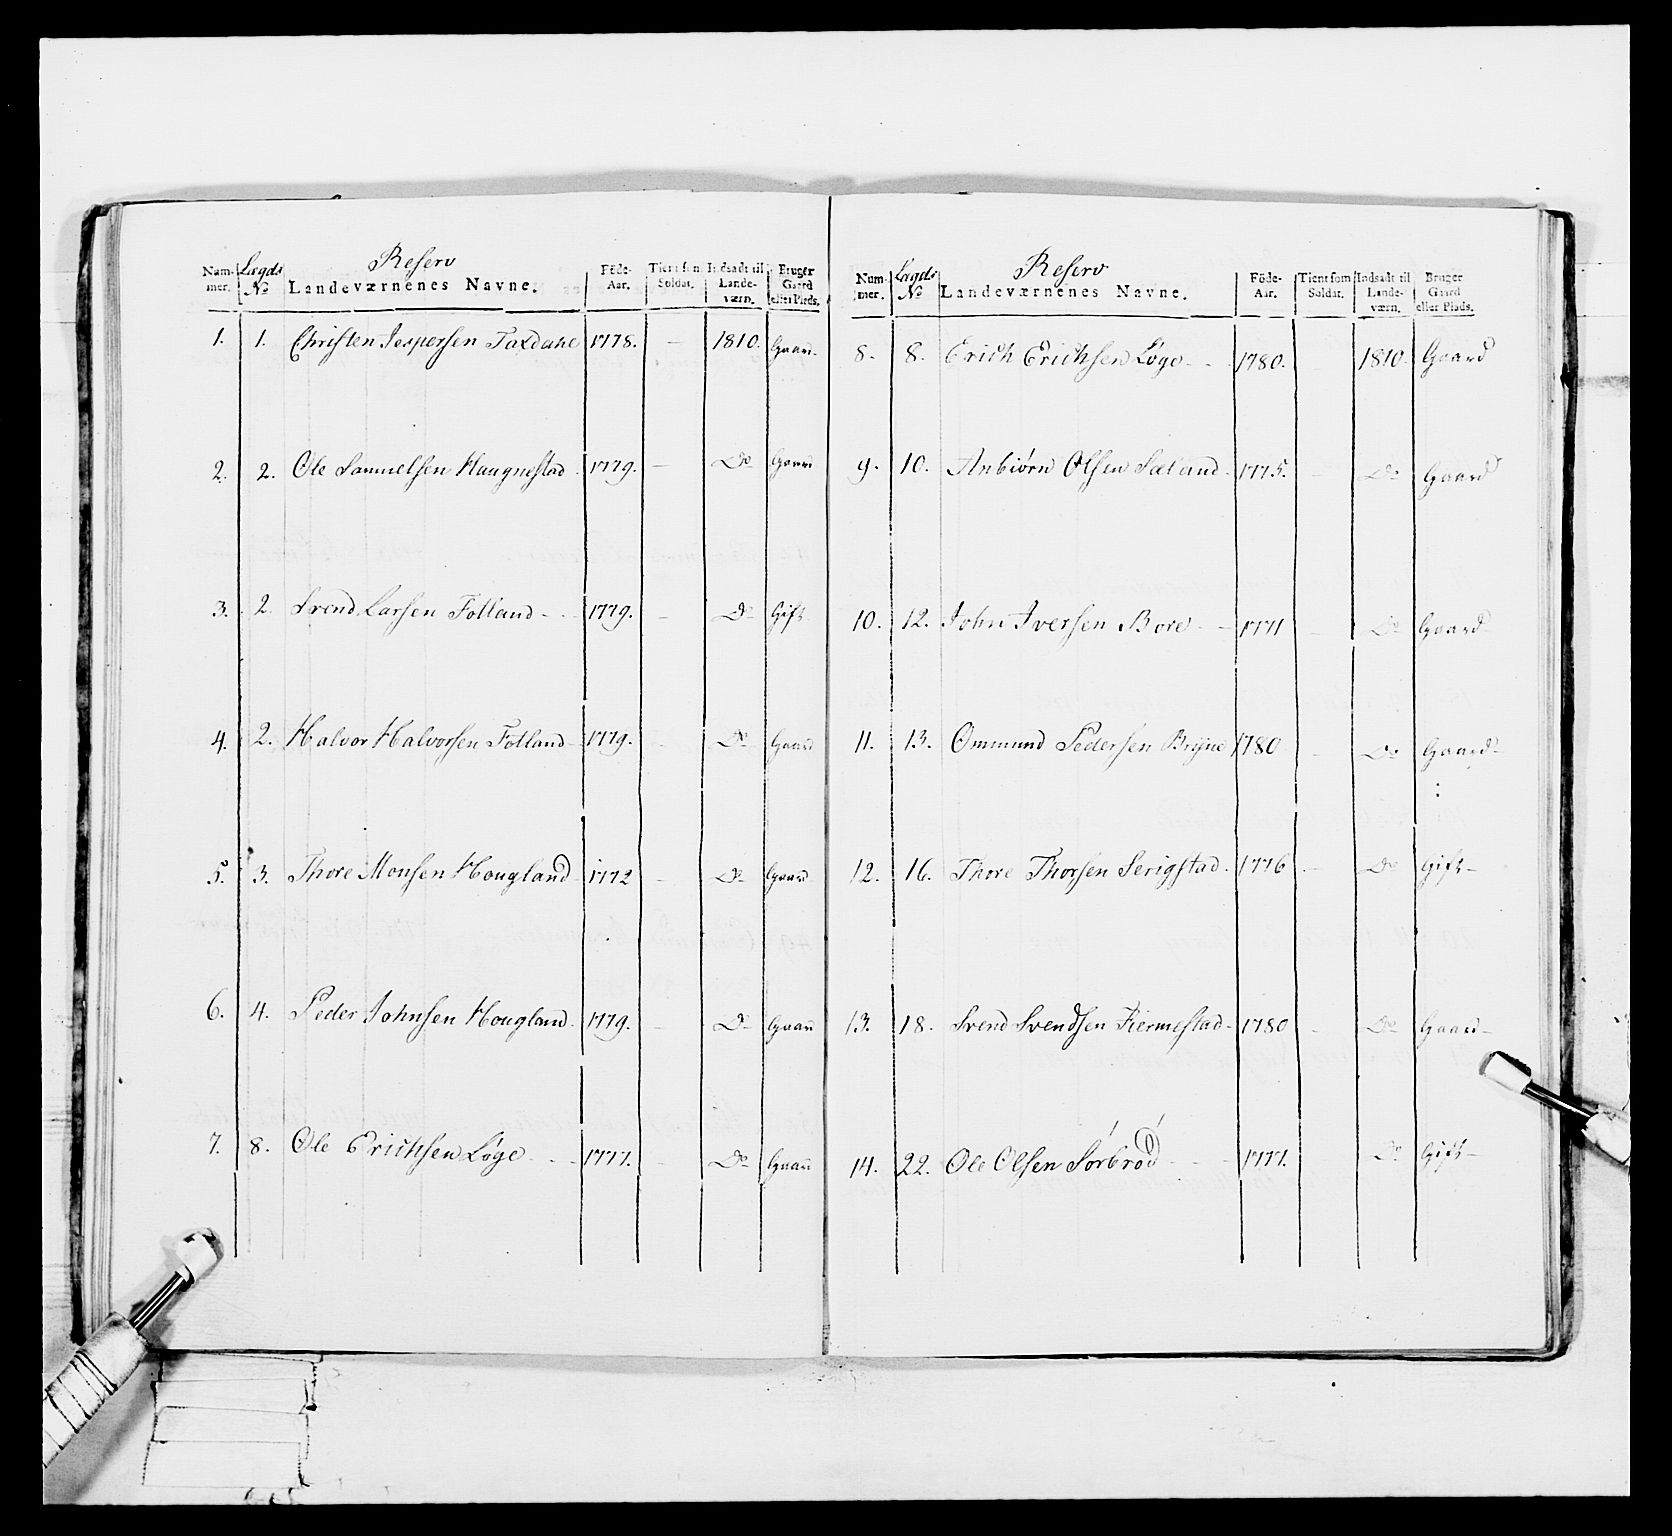 Reserv
Num-mer. Lægds No Landeværnenes Navne. Föde-Aar. Tient som Soldat. Indsadt til Lande-værn. Bruger Gaard eller Plads.
1. 1. Christen Jespersen 1778. — 1810. Gaard
2. 2. Ole Samuelsen Haugnestad 1779. — Do Gaard
3. 2. Svend Larsen Fotland 1779. — Do Gift
4. 2. Halvor Halvorsen Fotland 1779. — Do Gaard
5. 3. Thore Monsen Hougland 1772 — Do Gaard
6. 4. Peder Johnsen Hougland 1779. — Do Gaard
7. 8. Ole Erichsen Løge 1777. — Do Gaard
Reserv
Num-mer. Lægds No Landeværnenes Navne. Föde-Aar. Tient som Soldat. Indsadt til Lande-værn. Bruger Gaard eller Plads.
8. 8. Erich Erichsen Løge 1780. 1810. Gaard
9. 10. Anbiørn Olsen Sæland 1775. — Do Gaard
10. 12. John Iversen Bore 1771 — Do Gaard
11. 13. Ommund Pedersen Bryne 1780 — Do Gaard
12. 16. Thore Thorsen Serigstad 1776 — Do Gift
13. 18. Svend Svendsen Fiermestad 1780 — Do Gaard
14. 22. Ole Olsen Sørbrød 1777. Do Gift